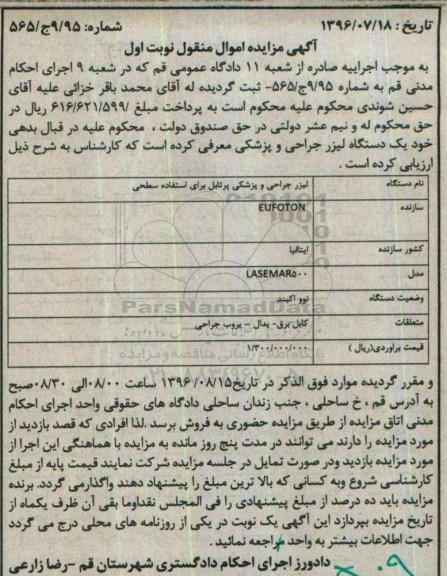 تاریخ : ۱۳۹۶/۰۷/۱۸ شماره: ۹/۹۵ج/۵۶۵
آگهی مزایده اموال منقول نوبت اول
به موجب اجراییه صادره از شعبه ۱۱ دادگاه عمومی قم که در شعبه ۹ اجرای احکام
مدنی قم به شماره ۹/۹۵ج/۵۶۵- ثبت گردیده له آقای محمد باقر خزائی علیه آقای
حسین شوندی محکوم علیه محکوم است به پرداخت مبلغ /۶۱۶/۶۲۱/۵۹۹ ریال در
حق محکوم له و نیم عشر دولتی در حق صندوق دولت ، محکوم علیه در قبال بدهی
خود یک دستگاه لیزر جراحی و پزشکی معرفی کرده است که کارشناس به شرح ذیل
ارزیابی کرده است .
نام دستگاه لیزر جراحی و پزشکی پرتابل برای استفاده سطحی
سازنده EUFOTON
کشور سازنده ایتالیا
مدل LASEMAR۵۰۰
وضعیت دستگاه نوو آکبند
متعلقات کابل برق- پدال – پروب جراحی
قیمت براوردی(ریال ) ۱/۳۰۰/۰۰۰/۰۰۰
ParsNamadData
پایگاه اطلاع رسانی مناقصه و مزایده
و مقرر گردیده موارد فوق الذکر در تاریخ۱۳۹۶/۰۸/۱۵ ساعت ۰۸/۰۰الی ۰۸/۳۰صبح
به آدرس قم ، خ ساحلی ، جنب زندان ساحلی دادگاه های حقوقی واحد اجرای احکام
مدنی اتاق مزایده از طریق مزایده حضوری به فروش برسد .لذا افرادی که قصد بازدید از
مورد مزایده را دارند می توانند در مدت پنج روز مانده به مزایده با هماهنگی این اجرا از
مورد مزایده بازدید ودر صورت تمایل در جلسه مزایده شرکت نمایند قیمت پایه از مبلغ
کارشناسی شروع وبه کسانی که بالا ترین مبلغ را پیشنهاد دهند واگذارمی گردد. برنده
مزایده باید ده درصد از مبلغ پیشنهادی را فی المجلس نقداوما بقی آن ظرف یکماه از
تاریخ مزایده بپردازد این آگهی یک نوبت در یکی از روزنامه های محلی درج می گردد
جهت اطلاعات بیشتر به واحد مراجعه نمائید .
دادورز اجرای احکام دادگستری شهرستان قم –رضا زارعی